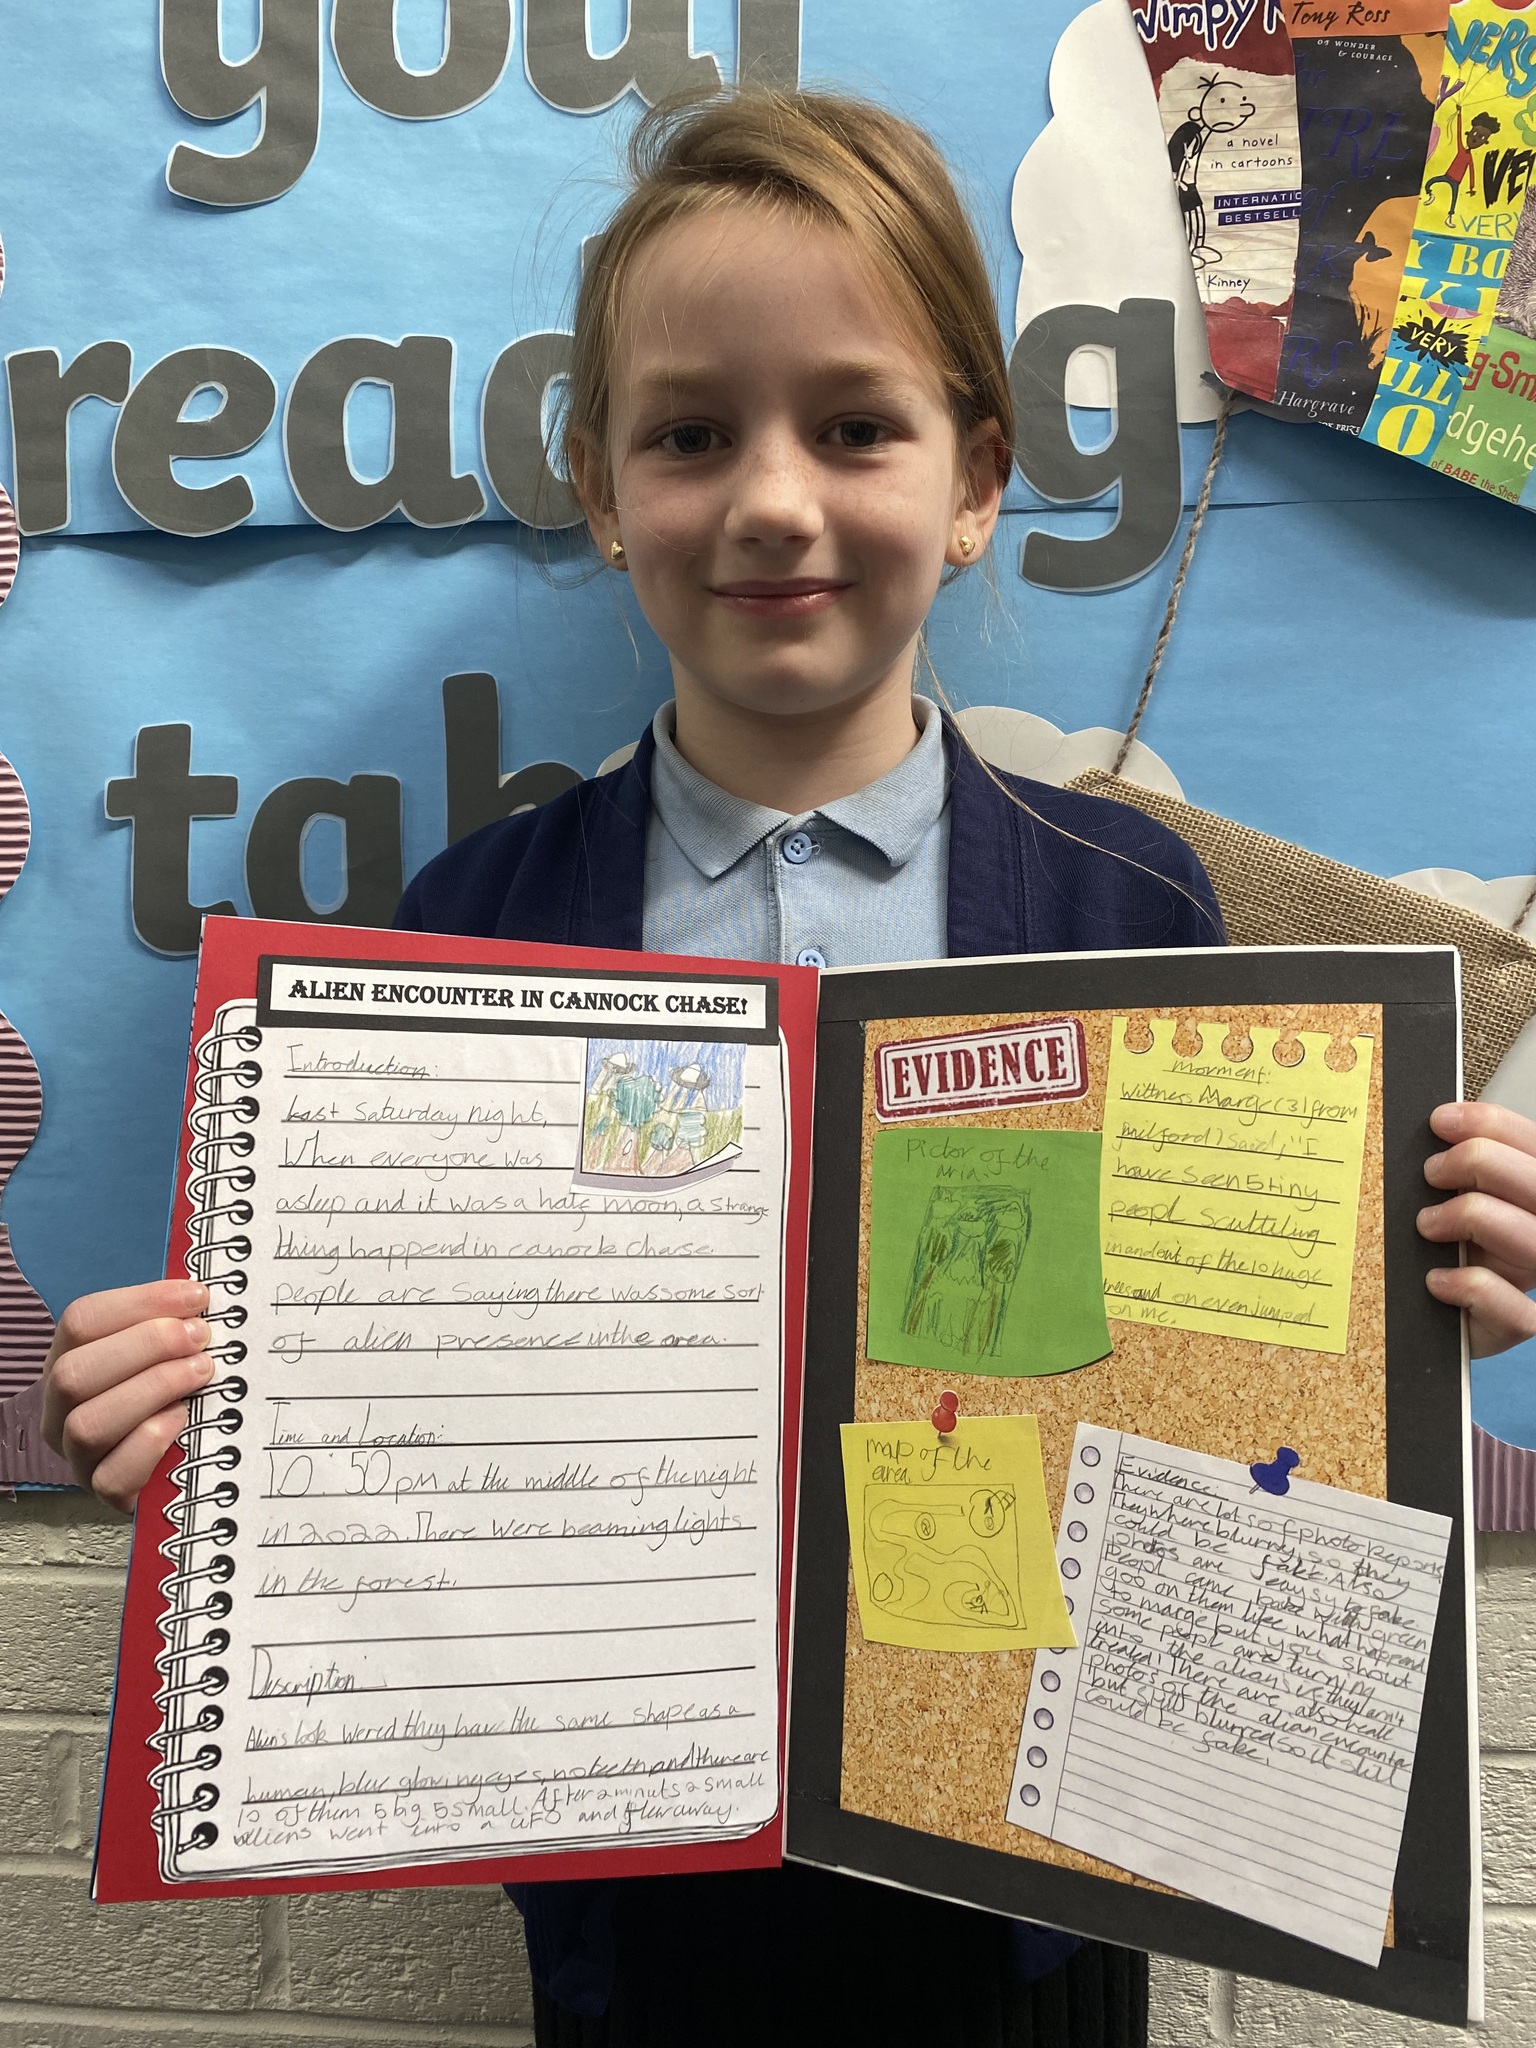 your
reading
take
Wimpy K
a novel
in cartoons
INTERNATIO
BESTSELL
Kinney
Tony Ross
OF WONDER
& COURAGE
Hargrave
VERY
VERY
Y BO
VERY
ILL
O
g-Sm
dgehe
of BABE the Sheep
ALIEN ENCOUNTER IN CANNOCK CHASE!
Introduction:
Last Saturday night,
When everyone was
asleep and it was a half moon, a strange
thing happend in canock chase.
people are saying there was some sort
of alien presence in the area.
Time and Location:
10:50 pm at the middle of the night
in 2022. There were beaming lights
in the forest.
Discription:
Aliens look wered they have the same shape as a
human, blue glowing eyes, no teeth and there are
10 of them 5 big 5 small. After 2 minuts 2 small
aliens went into a UFO and flew away.
EVIDENCE
Pictor of the
aria.
morment:
Wittness Marge (31 from
milford) said, "I
have seen 5 tiny
peopl scutteling
in and out of the 10 huge
trees and on even jumped
on me.
map of the
area.
Evidence:
There are lots of photo reports
They where blurry, so they
could be fake. Also
photos are easy to fake
Peopl came back with green
goo on them like what happend
to marge but you shout
some peopl are turning
into the aliens if they arn't
treated! There are also reall
photos of the alien encounter
but still blurred so it still
could be fake.